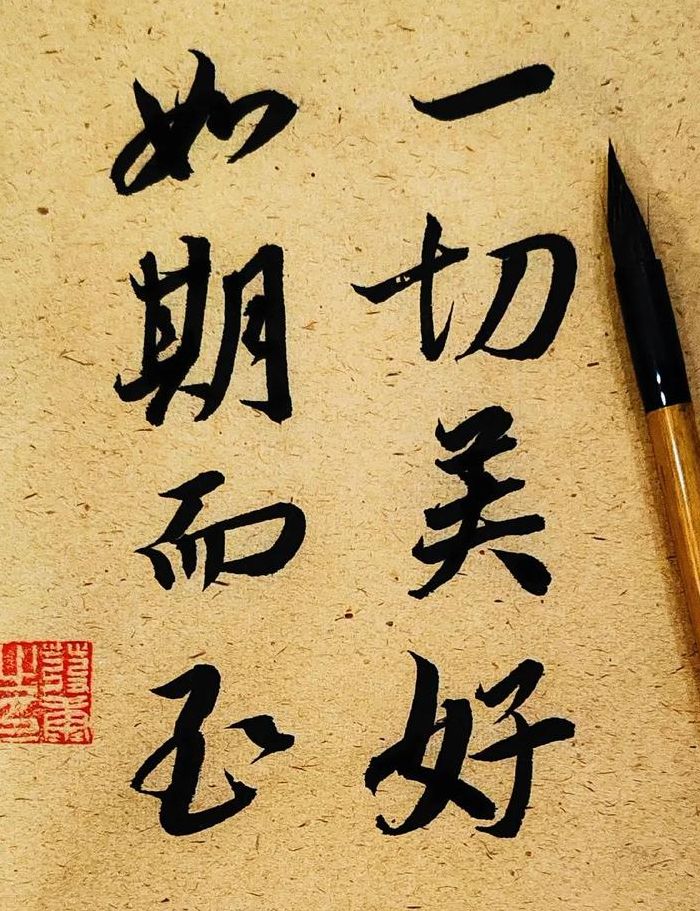 一切美好
如期而至